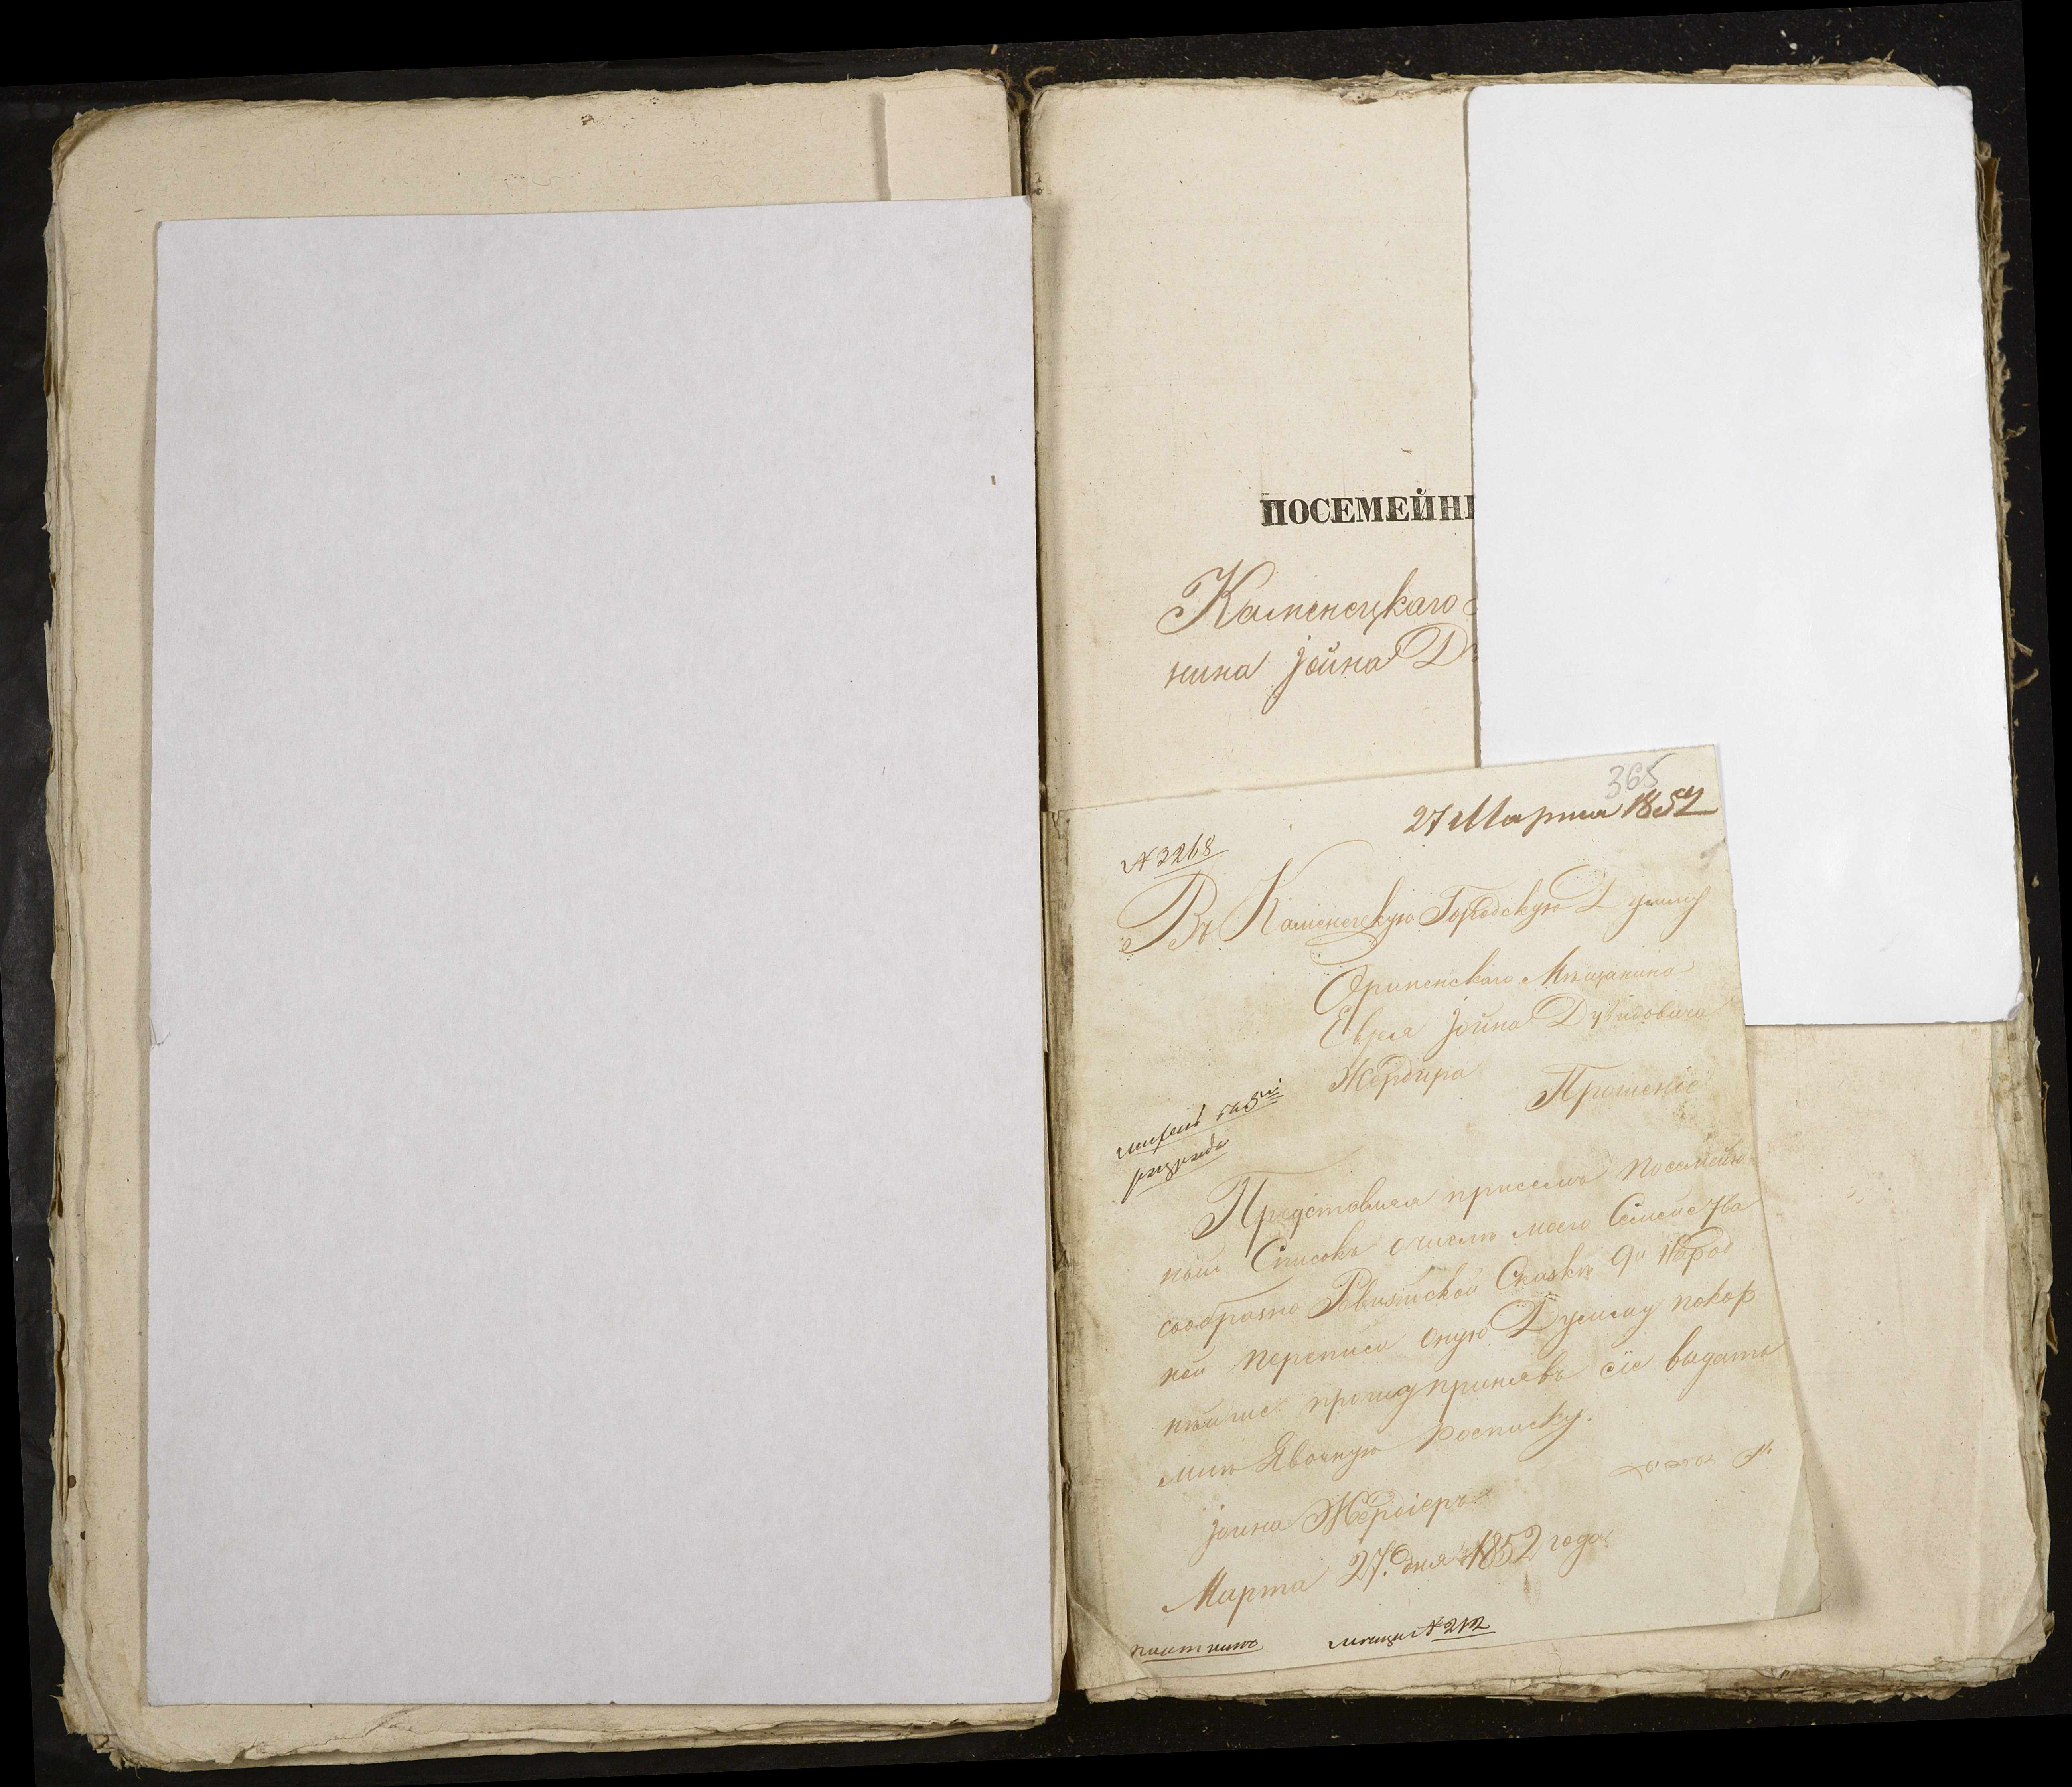 ПОСЕМЕЙН
Каменецкаго
нина Іойна Д
365
27 Марта 1852
№ 3268
Въ Каменецкую Городскую Думу
Орининскаго Мѣщанина
Еврея Іойна Дувидовича
Жердира
Прошеніе
разряда
Представляя присемъ посемей
ный Списокъ очислѣ моего Семейства
сообразно Ревизской Сказкѣ 9й Народ
ной переписи оную Думму покор
нѣйше прошу принявъ сіе выдать
мнѣ Явочную росписку.
Іойна Жердіеръ
Марта 27. дня 1852 года
№ 212